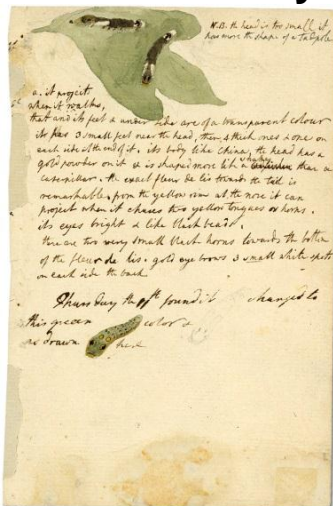 N.B. the head is too small, it
has more the shape of a tadpole
a. it projects
when it walks,
that and its feet & under side are of a transparent colour
it has 3 small feet near the head, then 4 thick ones & one on
each side of the end of it. its body like China, the head has a
gold powder on it & is shaped more like a than a
caterpillar. the exact fleur de lis towards the tail is
remarkable. from the yellow row at the nose it can
project when it chuses two yellow tongues or horns.
its eyes bright & like black beads.
there are two very small black horns towards the bottom
of the fleur de lis. gold eye brows 3 small white spots
on each side the back
Thursday the found it changed to
this green color &
as drawn here